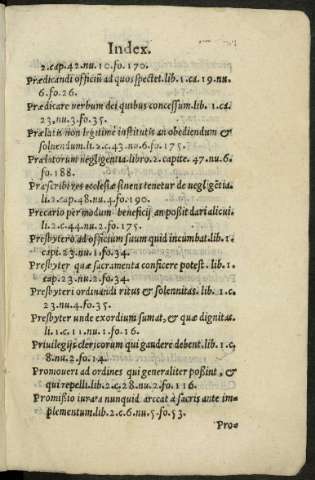 Index.
2.cap.42.nu.10.fo.170.
Prædicandi officiũ ad quos spectet.lib.1.ca.19.nu.
6.fo.26.
Prædicare verbum dei quibus concessum.lib. 1.ca.
23.nu.3.fo.35.
Prælatis non legitime institutis an obediendum &
soluendum.li.2.c.43.nu.6.fo.175.
Prælatorum negligentia.libro.2.capite.47.nu.6.
fo.188.
Præscribi res ecclesiæ sinens tenetur de negligẽtia.
li.2.cap.48.nu.4.fo.190.
Precario per modum beneficij an poßit dari alicui.
li.2.c.44.nu.2.fo.175.
Presbytero ad officium suum quid incumbat.lib.1.
capi.23.nu.1.fo.34.
Presbyter quæ sacramenta conficere potest. lib.1.
cap.23.nu.2.fo.34.
Presbyteri ordinandi ritus & solennitas. lib.1.c.
23.nu.4.fo.35.
Presbyter unde exordium sumat, & quæ dignitas.
li.1.c.11.nu.1.fo.16.
Priuilegijs clericorum qui gaudere debent.lib.1.c.
8.nu.2.fo.14.
Promoueri ad ordines qui generaliter poßint, &
qui repelli.lib.2.c.28.nu.2.fo.116.
Promißio iurata nunquid arceat à sacris ante im-
plementum.lib.2.c.6.nu.5.fo.53.
Pro-